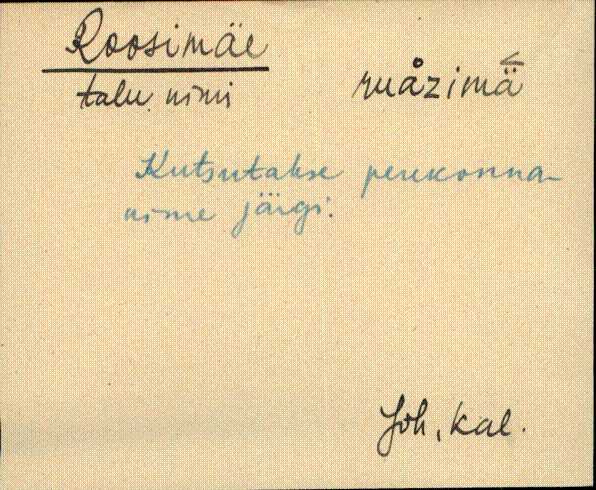 Roosimäe
talu nimi ruåzimä̆
Kutsutakse perekonna-
nime järgi.
Joh, Kal.